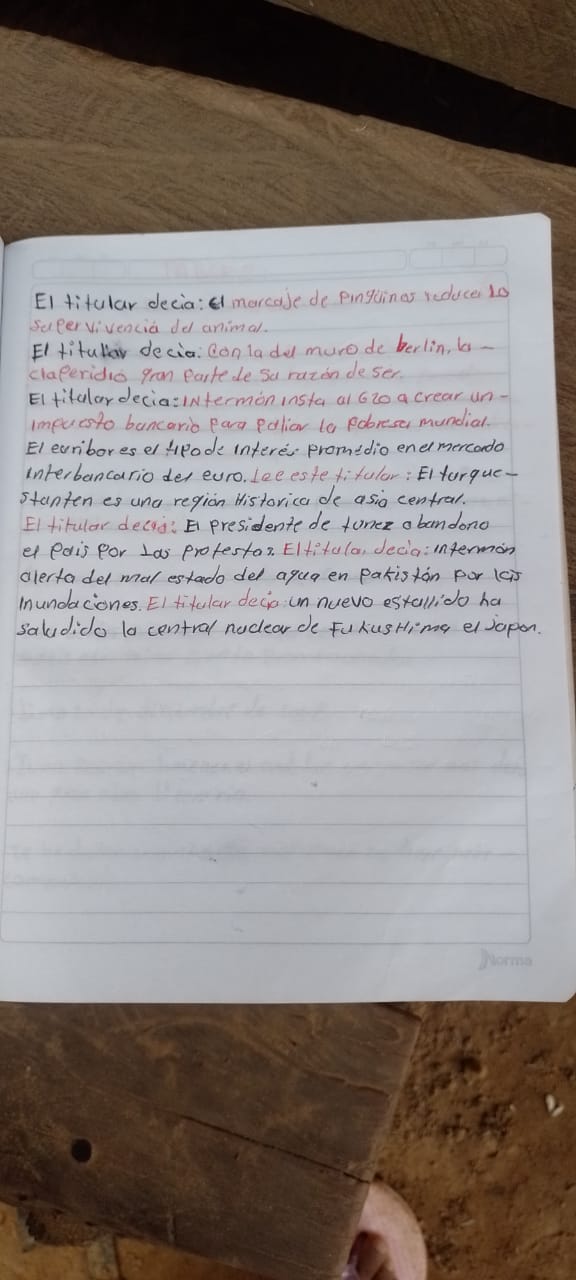 El titular decia: el marcaje de Pingüinos reduce lo
super vivencia del animal.
El titular decia: Con la del muro de berlin, la -
cla peridio gran parte de su razón de ser.
El titular decia: Intermón insta al G20 a crear un -
impuesto bancario para paliar la pobresa mundial.
El euribor es el tipo de interés promedio en el mercado
interbancario del euro. Lee este titular: El turque-
stanten es una región Historica de asia central.
El titular decia: El Presidente de tunez abandono
el país por las protestas. El titular decia: intermón
alerta del mal estado del agua en pakistán por las
inundaciones. El titular decia: un nuevo estallido ha
saludido la central nuclear de FukusHima el Japon.
Norma